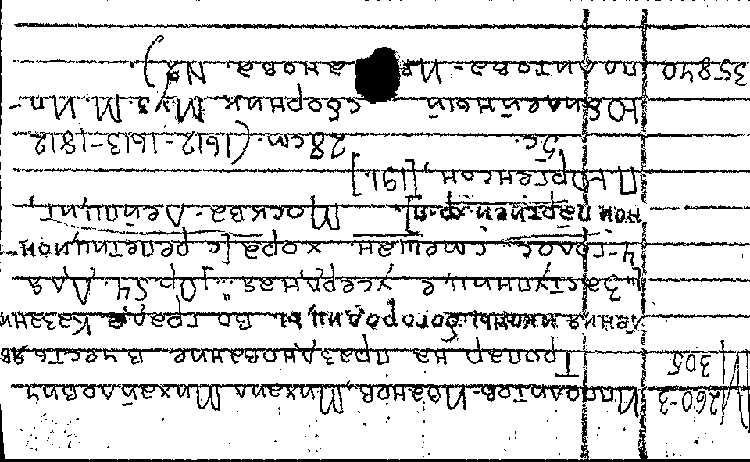 М260-3 Ипполитов-Иванов, Михаил Михайлович
305 Тропарь на празднование в честь яв
ления иконы богородицы во граде Казани
"Заступнице усердная". Ор. 54. Для
4-голос. смешан. хора [с репетицион-
ной партией ф.-п.]. Москва-Лейпциг,
П. Юргенсон, [191.]
5с. 28cm. (1612-1613-1812
Юбилейный сборник Муз. М. Ип-
35840 политова-Ив анова. №).